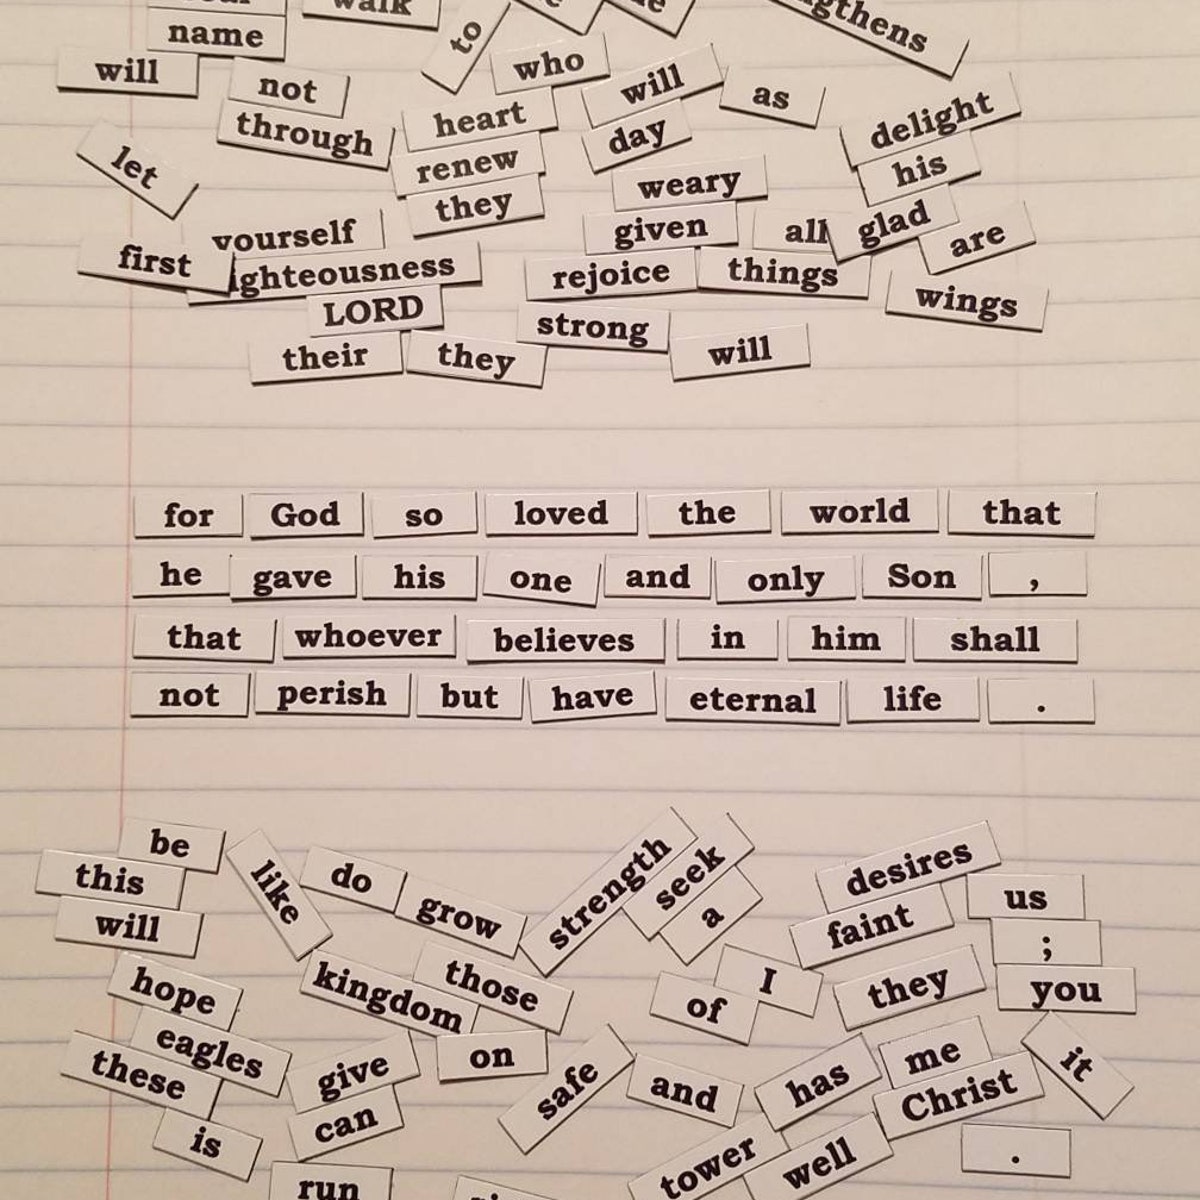 walk
name
to
gthens
who
will
not
will
as
heart
through
day
delight
let
renew
his
weary
they
yourself
given
all
glad
are
first
ighteousness
rejoice
things
wings
LORD
strong
their
they
will
for God so loved the world that
he gave his one and only Son ,
that whoever believes in him shall
not perish but have eternal life .
be
this
like
do
strength
seek
desires
will
grow
a
faint
us
;
hope
kingdom
those
of
I
they
you
eagles
these
give
on
safe
and
has
me
it
Christ
can
is
tower
well
.
run